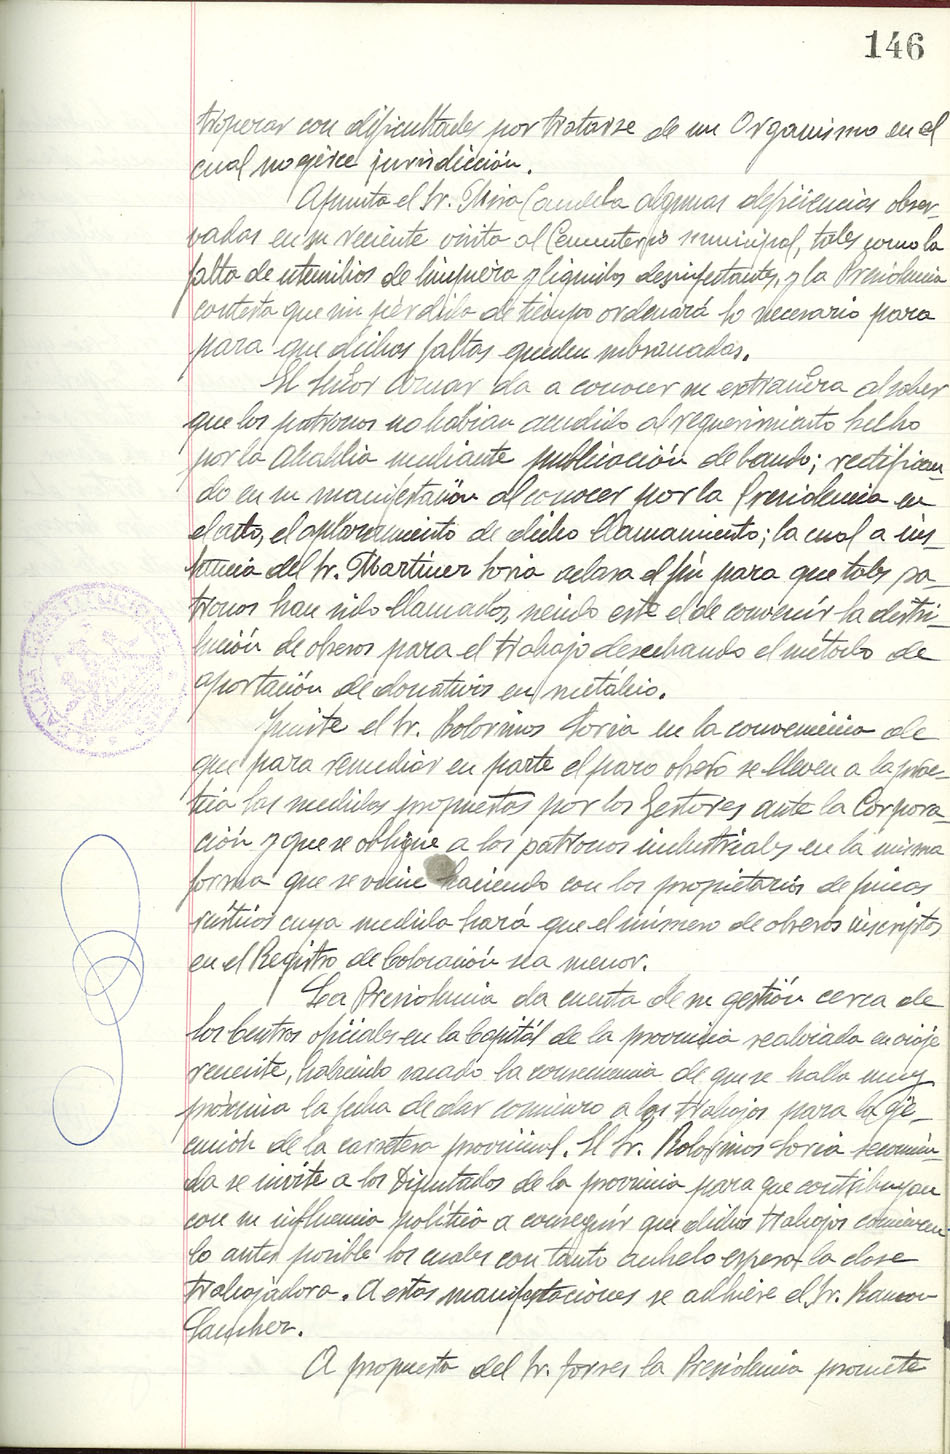 146
troperar con dificultades por tratarse de un Organismo en el
cual no ejerce jurisdicción.
Apunta el Sr. Mira Candela algunas deficiencias obser-
vadas en su reciente visita al Cementerio municipal, tales como la
falta de utensilios de limpieza y liquidos desinfestantes, y la Presidencia
contesta que sin pérdida de tiempo ordenará lo necesario para
para que dichas faltas queden subsanadas.
El Señor Aznar da a conocer su extrañeza al saber
que los patronos no habian acudido al requerimiento hecho
por la Alcaldia mediante publicación de bando; rectifican-
do en su manifestación al conocer por la Presidencia en
el acto, el aplazamiento de dicho llamamiento; la cual a ins-
tancia del Sr. Martinez Soria aclara el fin para que tales pa-
tronos han sido llamados, siendo este el de convenir la distri-
bución de obreros para el trabajo desechando el método de
aportación de donativos en metálico.
Insiste el Sr. Bolorinos Soria en la conveniencia de
que para remediar en parte el paro obrero se lleven a la prác-
tica las medidas propuestas por los Gestores ante la Corpora-
ción y que se oblique a los patronos industriales en la misma
forma que se viene haciendo con los propietarios de fincas
rústicas cuya medida hará que el número de obreros inscriptos
en el Registro de Colocación sea menor.
La Presidencia da cuenta de su gestión cerca de
los Centros oficiales en la Capitál de la provincia realizada en viaje
reciente, habiendo sacado la consecuencia de que se halla muy
próxima la fecha de dar comienzo a los trabajos para la eje-
cución de la carretera provincial. El Sr. Bolorinos Soria recomien-
da se invite a los Diputados de la provincia para que contribuyan
con su influencia politica a conseguir que dichos trabajos comiencen
lo antes posible los cuales con tanto anhelo espera la clase
trabajadora. A estas manifestaciones se adhiere el Sr. Ramon
Sanchez.
A propuesta del Sr. Torres la Presidencia promete